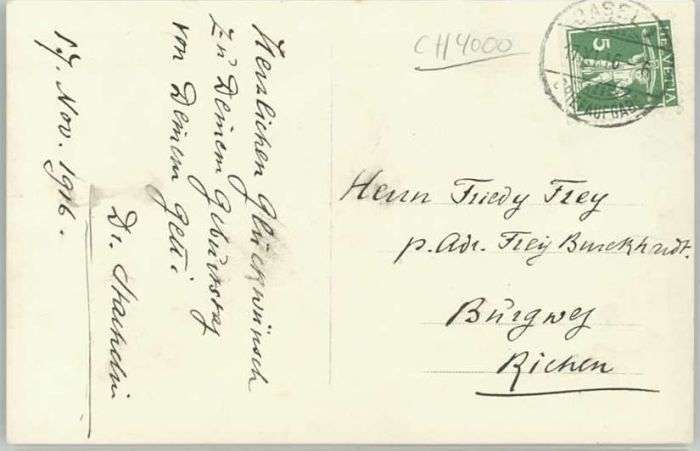 Herzlichen Glückwünsch
zu Deinem Geburtstag
von Deinem Getti
Dr. Staehelin
17. Nov. 1916.
CH4000
BASEL
BRIEFAUFGABE
HELVETIA
5
Herrn Friedy Frey
p. Adr. Frey Burckhardt.
Burgweg
Richen